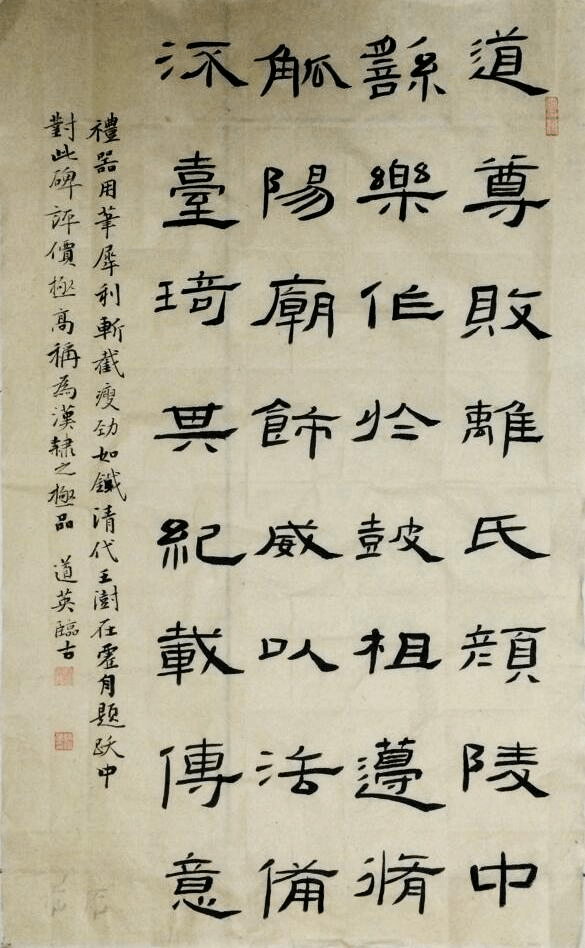 道尊敗離氏顏陵中
樂作於鼓柤遵脩
觚陽廟飾威以活備
臺琦異紀載傳意
禮器用筆犀利斬截瘦勁如鐵清代王澍在虛舟題跋中
對此碑評價極高稱為漢隸之極品 道英臨古